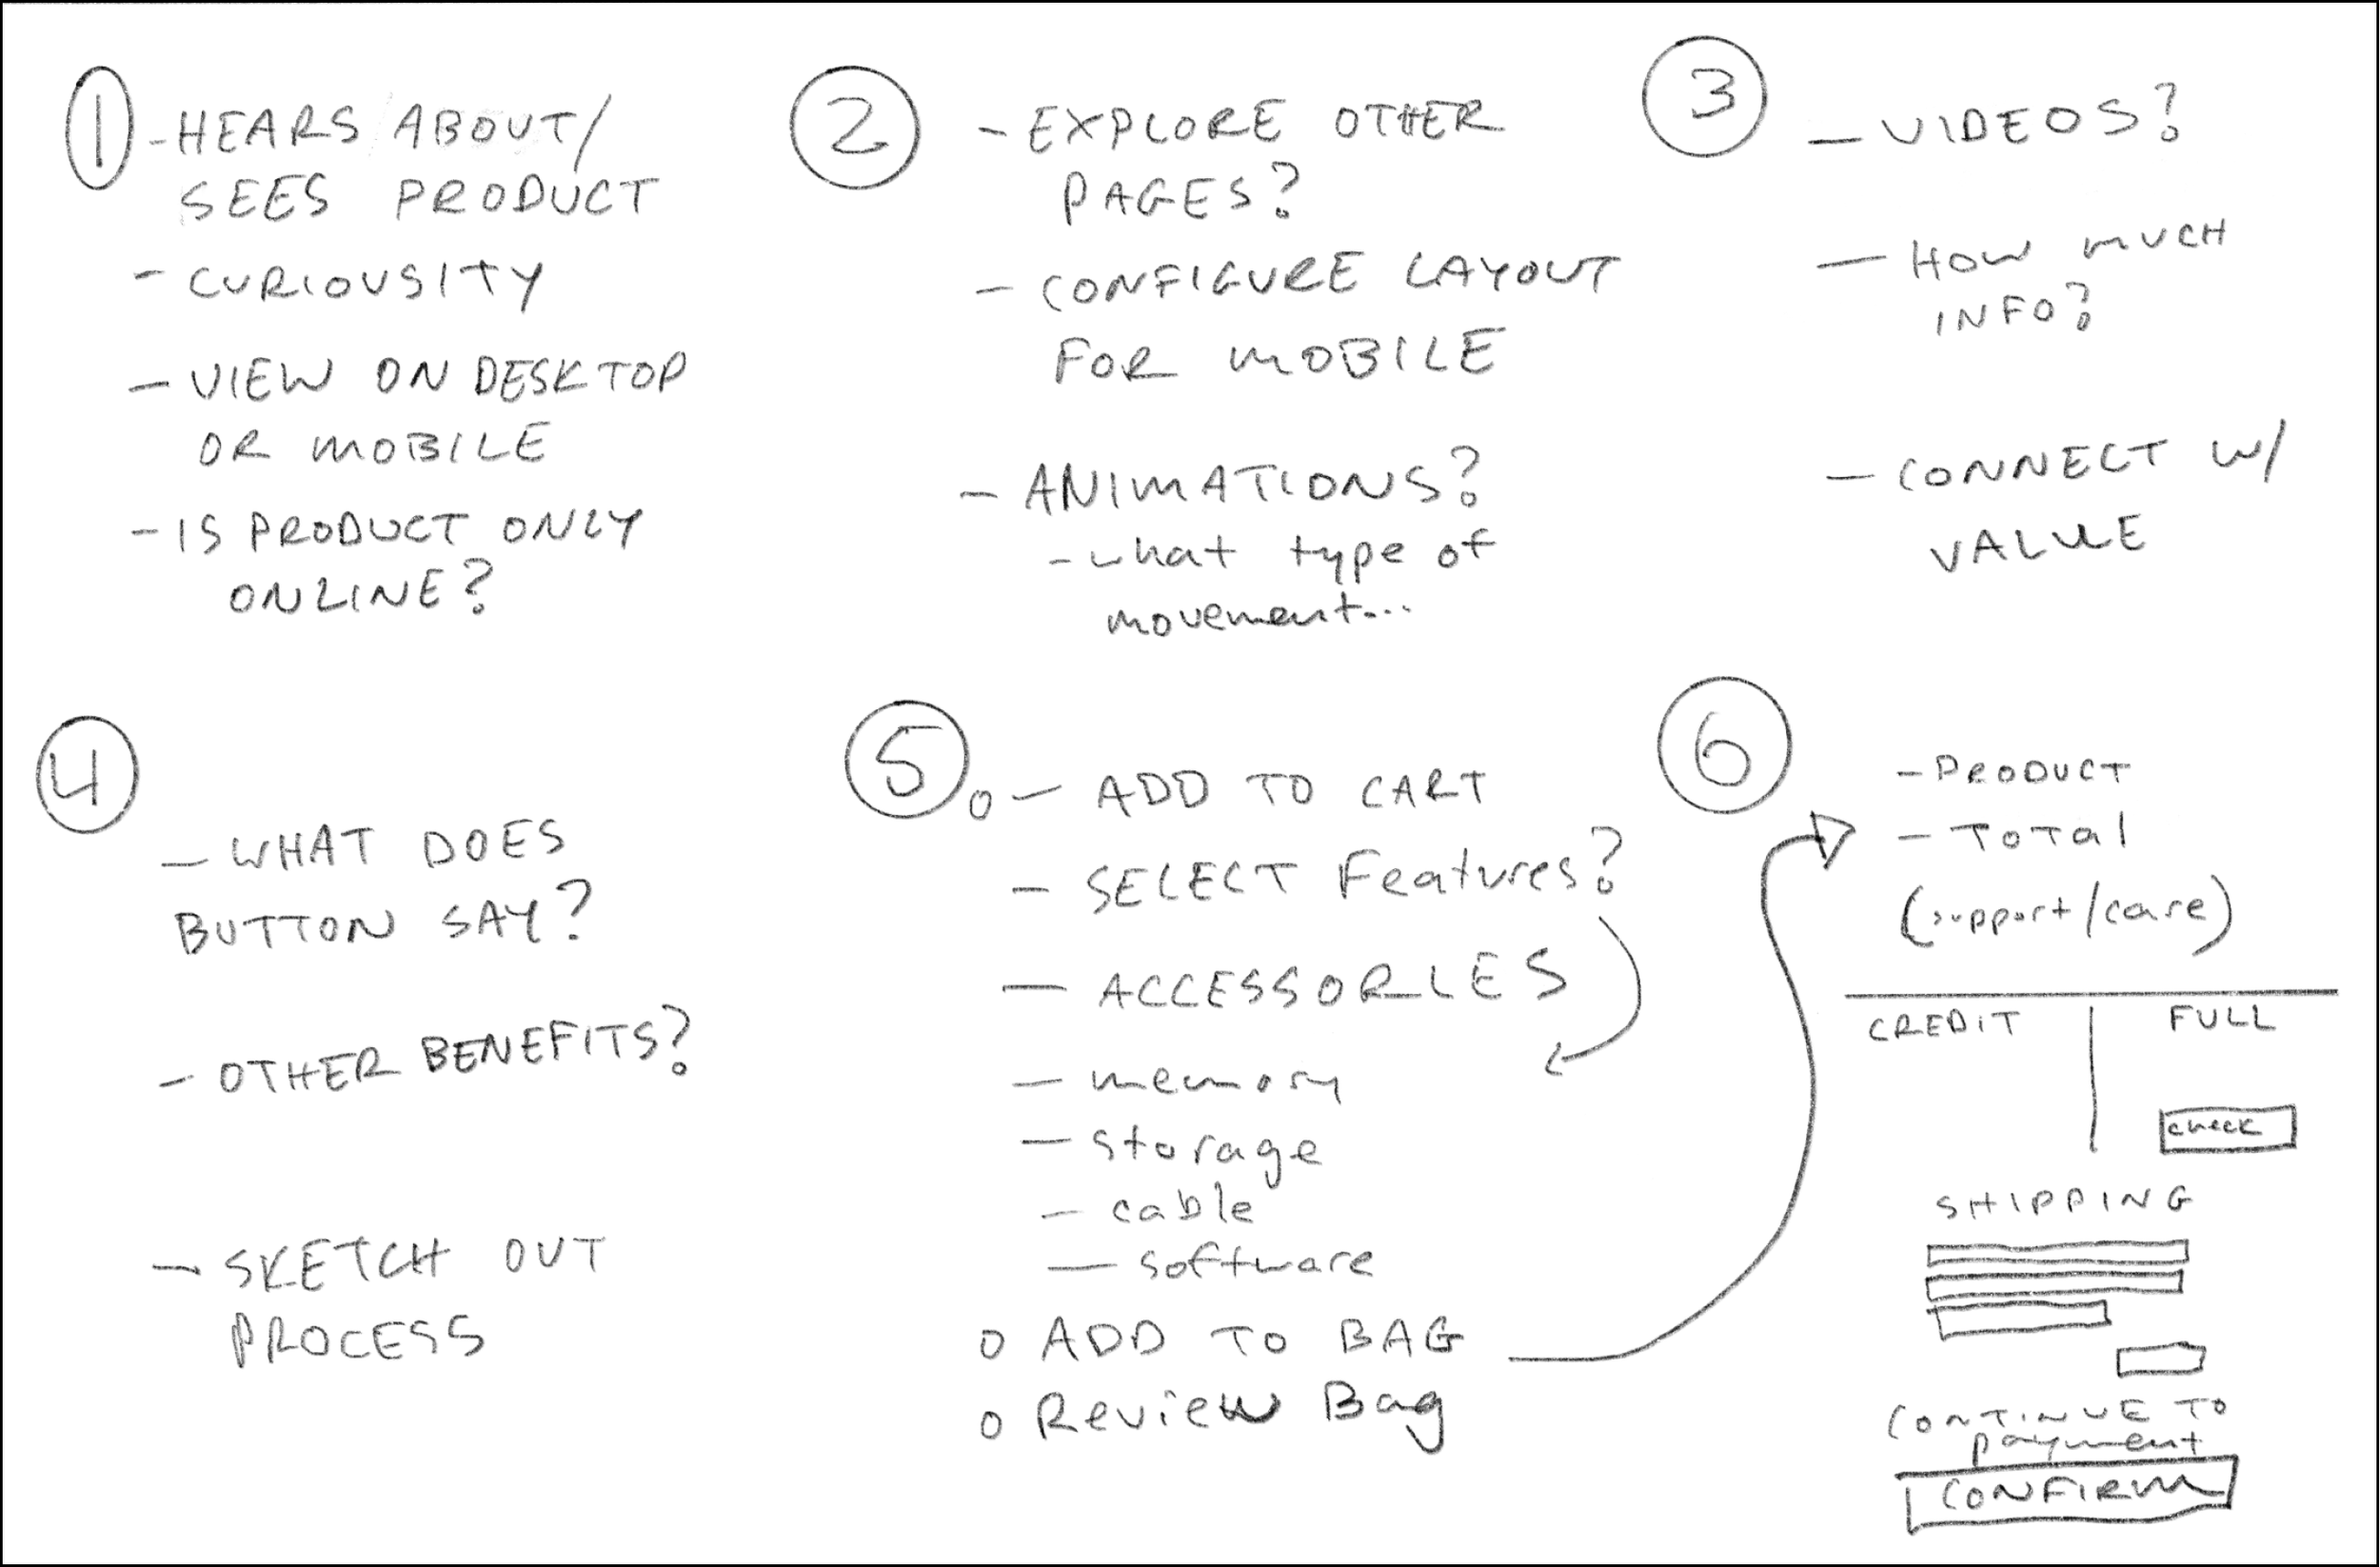 1
- HEARS ABOUT/
SEES PRODUCT
- CURIOUSITY
- VIEW ON DESKTOP
OR MOBILE
- IS PRODUCT ONLY
ONLINE?
2
- EXPLORE OTHER
PAGES?
- CONFIGURE LAYOUT
FOR MOBILE
- ANIMATIONS?
- what type of
movement...
3
- VIDEOS?
- HOW MUCH
INFO?
- CONNECT W/
VALUE
4
- WHAT DOES
BUTTON SAY?
- OTHER BENEFITS?
- SKETCH OUT
PROCESS
5
o - ADD TO CART
- SELECT Features?
- ACCESSORIES
- memory
- storage
- cable
- software
o ADD TO BAG
o Review Bag
6
- PRODUCT
- TOTAl
(support/care)
CREDIT FULL
check
SHIPPING
CONTINUE TO
payment
CONFIRM